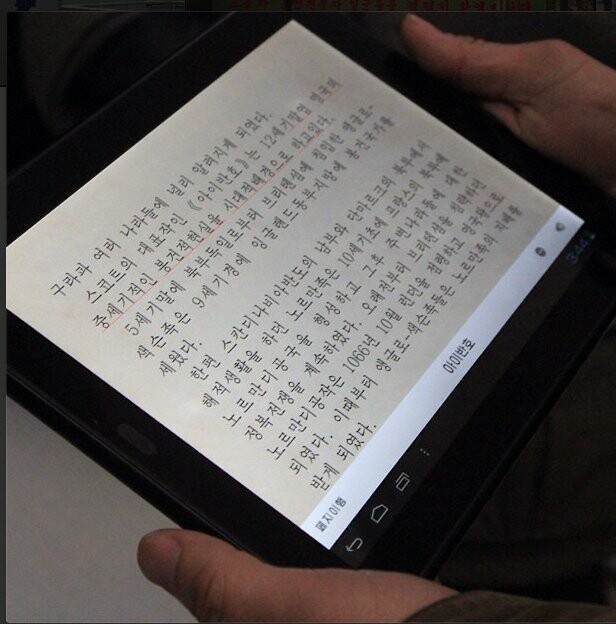 구라파 여러 나라들에 널리 알려지게 되였다.
스코트의 대표작인 《아이반호》는 12세기말엽 영국의
중세기적인 봉건적현실을 시대적배경으로 하고있다.
5세기말에 북부독일로부터 브리텐섬에 침입한 앵글로-
색손족은 9세기경에 잉글랜드동부지방에 봉건국가를
세웠다.
한편 스칸디나비아반도의 남부와 단마르크의 북부에서
해적생활을 하던 노르만족은 10세기초에 프랑스의 북부에
노르만디공국을 형성하고 그후 주변나라들에 대한
정복전쟁을 계속하였다. 오래전부터 브리텐섬을 침략하던
노르만디공작은 1066년 10월 런던을 점령하고 영국왕으로
되였다. 이때부터 앵글로-색손족들은 노르만족의 지배를
받게 되였다.
페지이행
아이반호
3:44